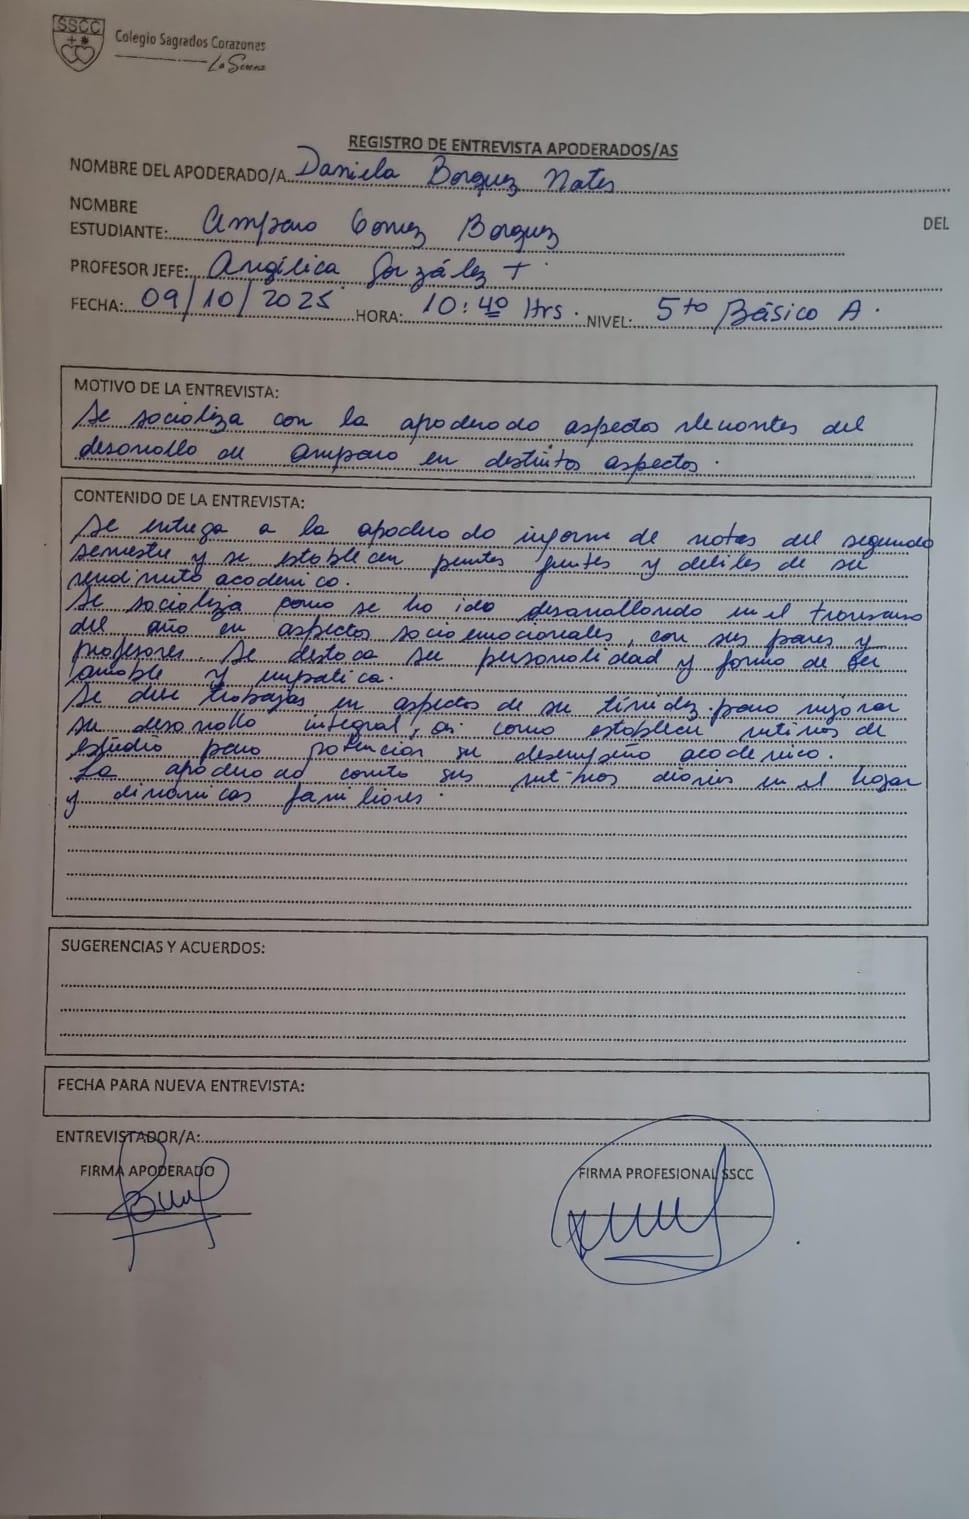 SSCC
Colegio Sagrados Corazones
La Serena
REGISTRO DE ENTREVISTA APODERADOS/AS
NOMBRE DEL APODERADO/A Daniela Borquez Nates
NOMBRE DEL
ESTUDIANTE: Amparo Gomez Borquez
PROFESOR JEFE: Angélica González T.
FECHA: 09/10/2025 HORA: 10:40 Hrs. NIVEL: 5to Básico A.
MOTIVO DE LA ENTREVISTA:
Se socializa con la apoderada aspectos relevantes del
desarrollo de Amparo en distintos aspectos.
CONTENIDO DE LA ENTREVISTA:
Se entrega a la apoderada informe de notas del segundo
semestre y se establecen puntos fuertes y debiles de su
rendimiento academico.
Se socializa como se ha ido desarrollando en el transcurso
del año en aspectos socioemocionales, con sus pares y
profesores. Se destaca su personalidad y forma de ser
amable y empatica.
Se debe trabajar en aspectos de su timidez para mejorar
su desarrollo integral, asi como establecer rutinas de
estudio para potenciar su desempeño academico.
La apoderada comenta sus rutinas diarias en el hogar
y dinamicas familiares.
SUGERENCIAS Y ACUERDOS:
FECHA PARA NUEVA ENTREVISTA:
ENTREVISTADOR/A:
FIRMA APODERADO FIRMA PROFESIONAL SSCC